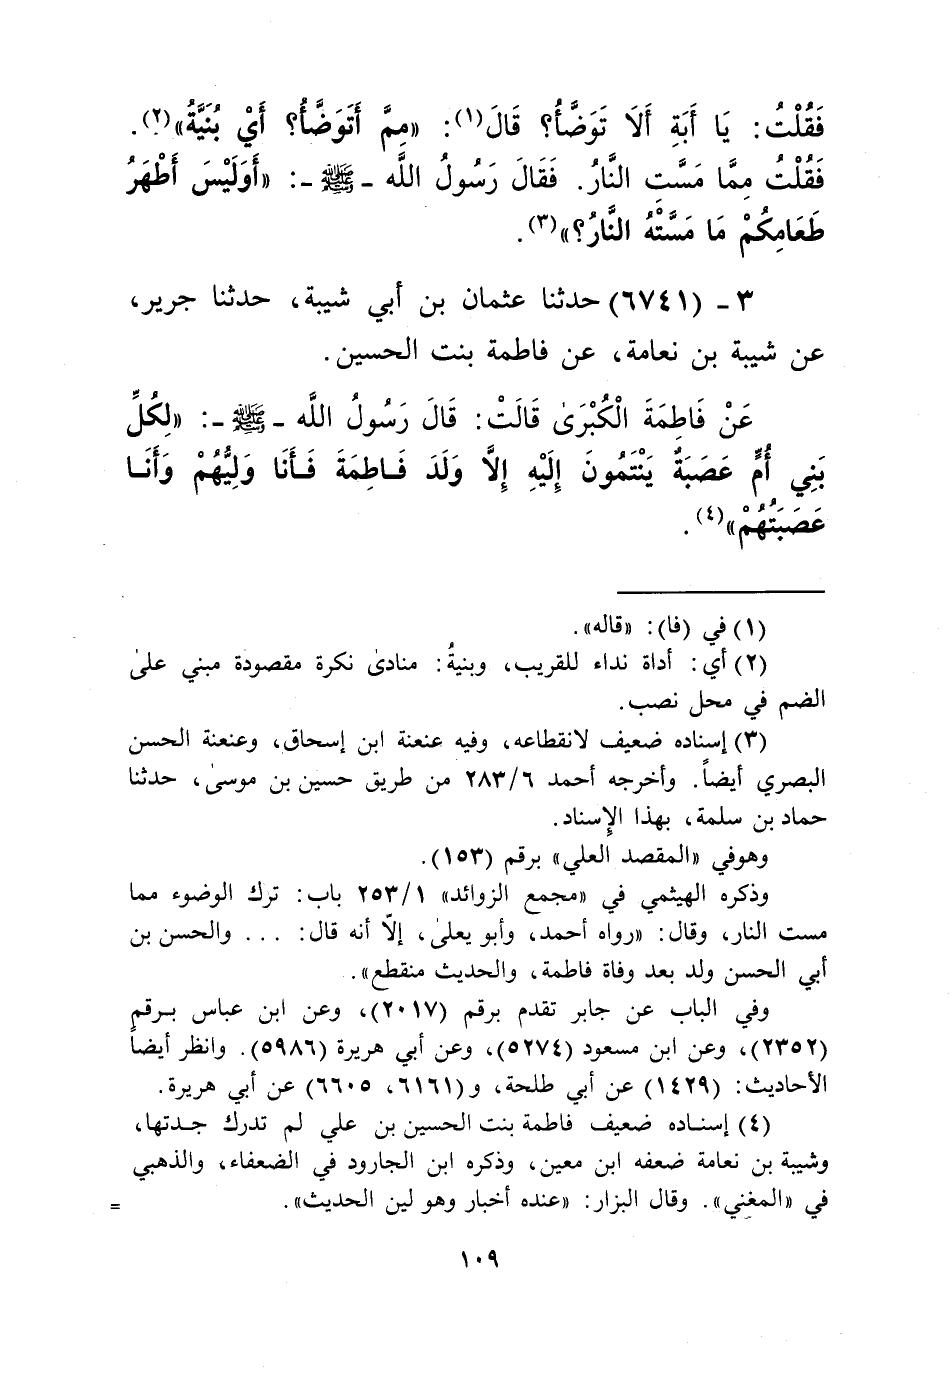 فَقُلْتُ: يَا أَبَةِ أَلَا تَوَضَّأُ؟ قَالَ(١): «مِمَّ أَتَوَضَّأُ؟ أَيْ بُنَيَّةُ»(٢).
فَقُلْتُ مِمَّا مَسَّتِ النَّارُ. فَقَالَ رَسُولُ اللَّه ـ ﷺ ـ: «أَوَلَيْسَ أَطْهَرُ
طَعَامِكُمْ مَا مَسَّتْهُ النَّارُ؟»(٣).
٣ ـ (٦٧٤١) حدثنا عثمان بن أبي شيبة، حدثنا جرير،
عن شيبة بن نعامة، عن فاطمة بنت الحسين.
عَنْ فَاطِمَةَ الْكُبْرَىٰ قَالَتْ: قَالَ رَسُولُ اللَّه ـ ﷺ ـ: «لِكُلِّ
بَنِي أُمٍّ عَصَبَةٌ يَنْتَمُونَ إِلَيْهِ إِلَّا وَلَدَ فَـاطِمَةَ فَـأَنَا وَلِيُّهُمْ وَأَنَـا
عَصَبَتُهُمْ»(٤).
(١) في (فا): «قاله».
(٢) أي: أداة نداء للقريب، وبنيةُ: منادىٰ نكرة مقصودة مبني علىٰ
الضم في محل نصب.
(٣) إسناده ضعيف لانقطاعه، وفيه عنعنة ابن إسحاق، وعنعنة الحسن
البصري أيضاً. وأخرجه أحمد ٢٨٣/٦ من طريق حسين بن موسىٰ، حدثنا
حماد بن سلمة، بهذا الإِسناد.
وهوفي «المقصد العلي» برقم (١٥٣).
وذكره الهيثمي في «مجمع الزوائد» ٢٥٣/١ باب: ترك الوضوء مما
مست النار، وقال: «رواه أحمد، وأبو يعلىٰ، إلّا أنه قال: ... والحسن بن
أبي الحسن ولد بعد وفاة فاطمة، والحديث منقطع».
وفي الباب عن جابر تقدم برقم (٢٠١٧)، وعن ابن عباس بـرقم
(٢٣٥٢)، وعن ابن مسعود (٥٢٧٤)، وعن أبي هريرة (٥٩٨٦). وانظر أيضاً
الأحاديث: (١٤٢٩) عن أبي طلحة، و(٦١٦١، ٦٦٠٥) عن أبي هريرة.
(٤) إسنـاده ضعيف فاطمة بنت الحسين بن علي لم تدرك جـدتها،
وشيبة بن نعامة ضعفه ابن معين، وذكره ابن الجارود في الضعفاء، والذهبي
في «المغني». وقال البزار: «عنده أخبار وهو لين الحديث». =
١٠٩